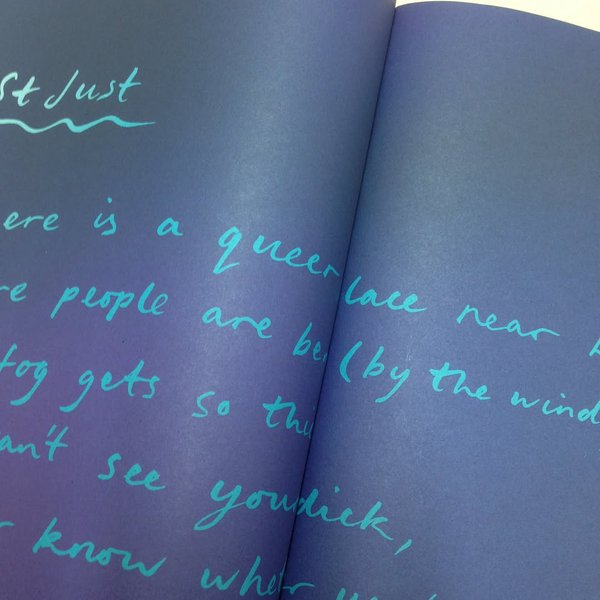 St Just
ere is a queer lace near
re people are be (by the wind
fog gets so thi
an't see you dick,
know whe